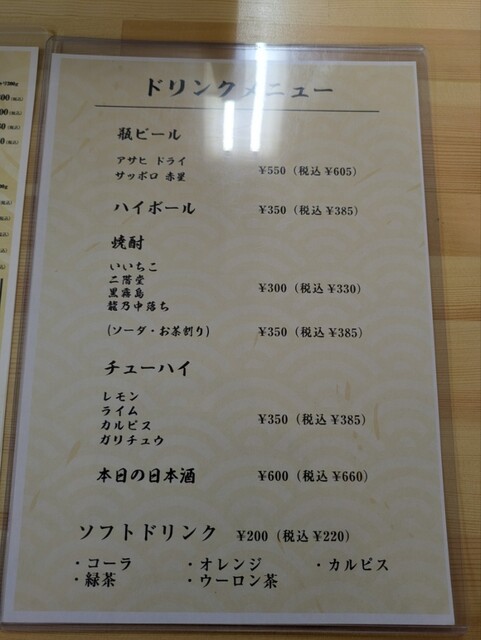 ドリンクメニュー
瓶ビール
アサヒ ドライ
サッポロ 赤星
¥550（税込 ¥605）
ハイボール ¥350（税込 ¥385）
焼酎
いいちこ
二階堂
黒霧島
¥300（税込 ¥330）
乃中落ち
(ソーダ・お茶割り) ¥350（税込 ¥385）
チューハイ
レモン
ライム
カルピス
ガリチュウ
¥350（税込 ¥385）
本日の日本酒 ¥600（税込 ¥660）
ソフトドリンク ¥200（税込 ¥220）
・コーラ ・オレンジ ・カルピス
・緑茶 ・ウーロン茶